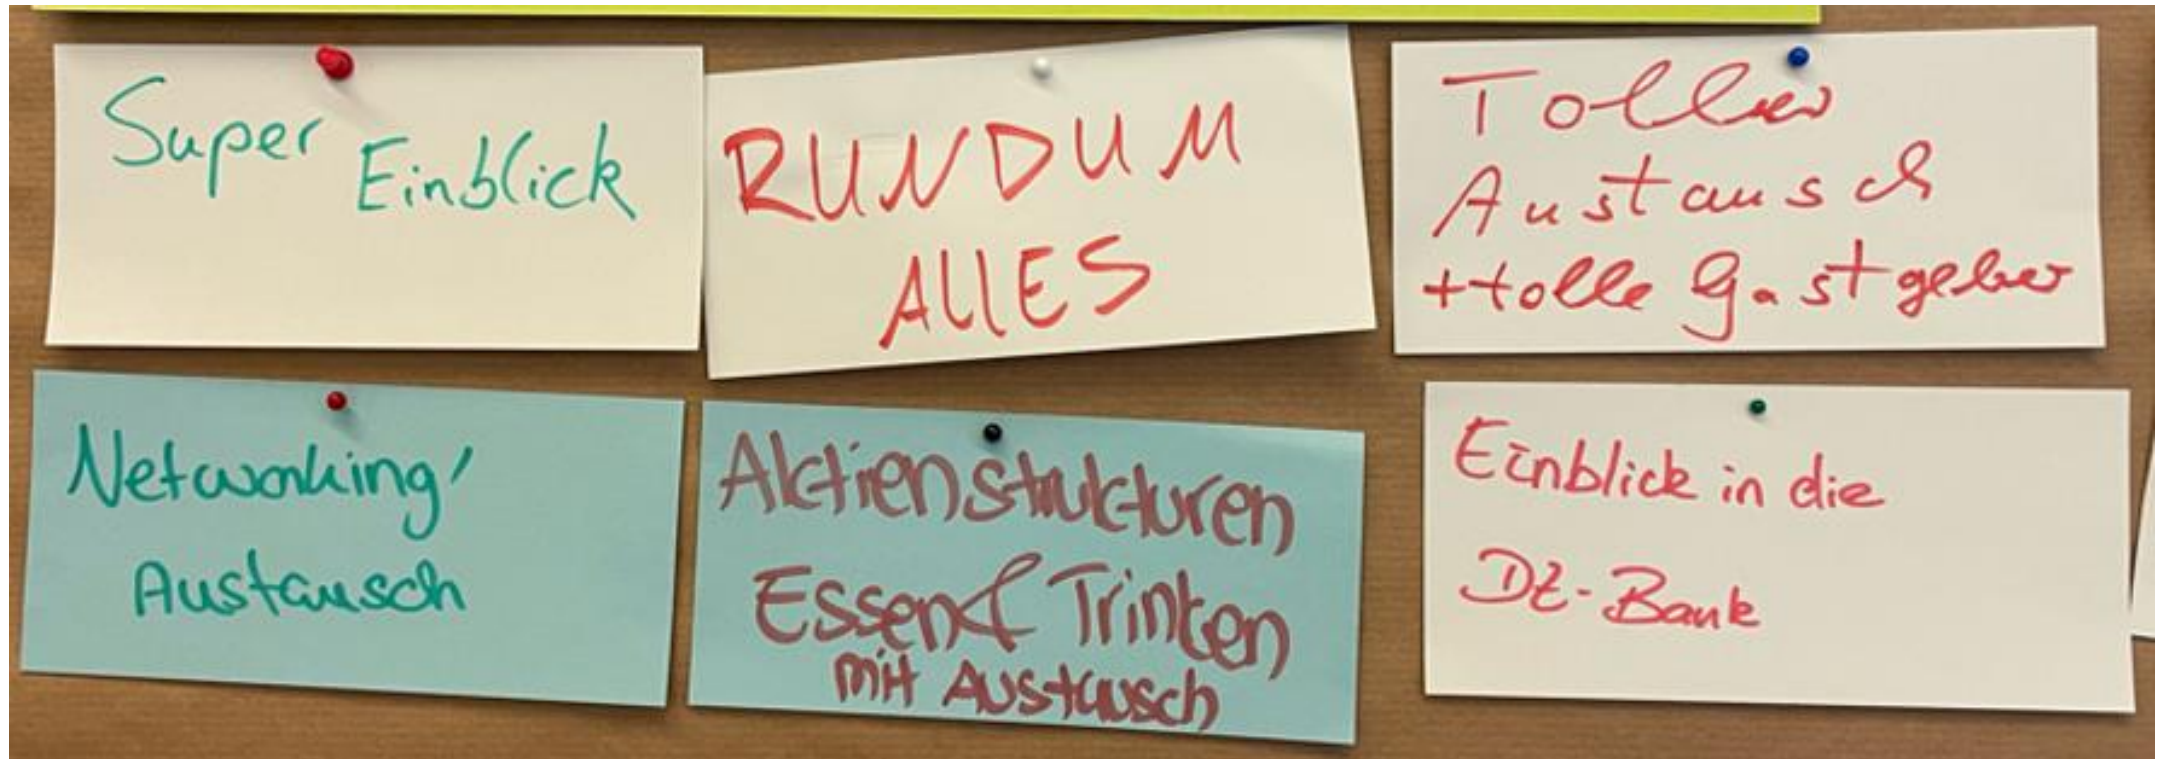 Super Einblick
RUNDUM
ALLES
Toller
Austausch
+tolle Gastgeber
Networking/
Austausch
Aktienstrukturen
Essen & Trinken
mit Austausch
Einblick in die
DZ-Bank